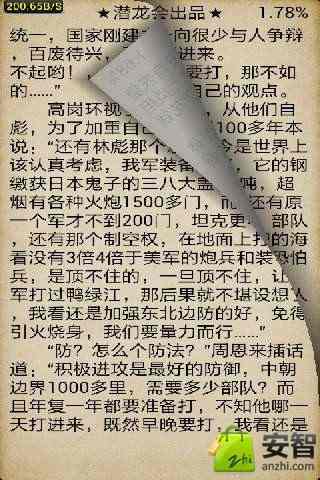 200.65B/S
★潜龙会出品★ 1.78%
统一，国家刚建 一向很少与人争辩
，百废待兴， 进来。
不起哟！， 要打，那不如
的……” 自己的观点。
高岗环视 ，从他们自
彪，为了加重自己 100多年本
说：“还有林彪那个 今是世界上
该认真考虑，我军装备 ，它的钢
缴获日本鬼子的三八大盖 吨，超
烟有各种火炮1500多门，而 还有原
一个军才不到200门，坦克更 部队
，还有那个制空权，在地面上打 的海
看没有3倍4倍于美军的炮兵和装 恐怕
兵，是顶不住的，一旦顶不住，让
军打过鸭绿江，那后果就不堪设想 人
，我看还是加强东北边防的好，免得
引火烧身，我们要量力而行……”
“防？怎么个防法？”周恩来插话
道：“积极进攻是最好的防御，中朝
边界1000多里，需要多少部队？而
且年复一年都要准备打，不知他哪一
天打进来，既然早晚要打，我看还是
安智
anzhi.com
zhi